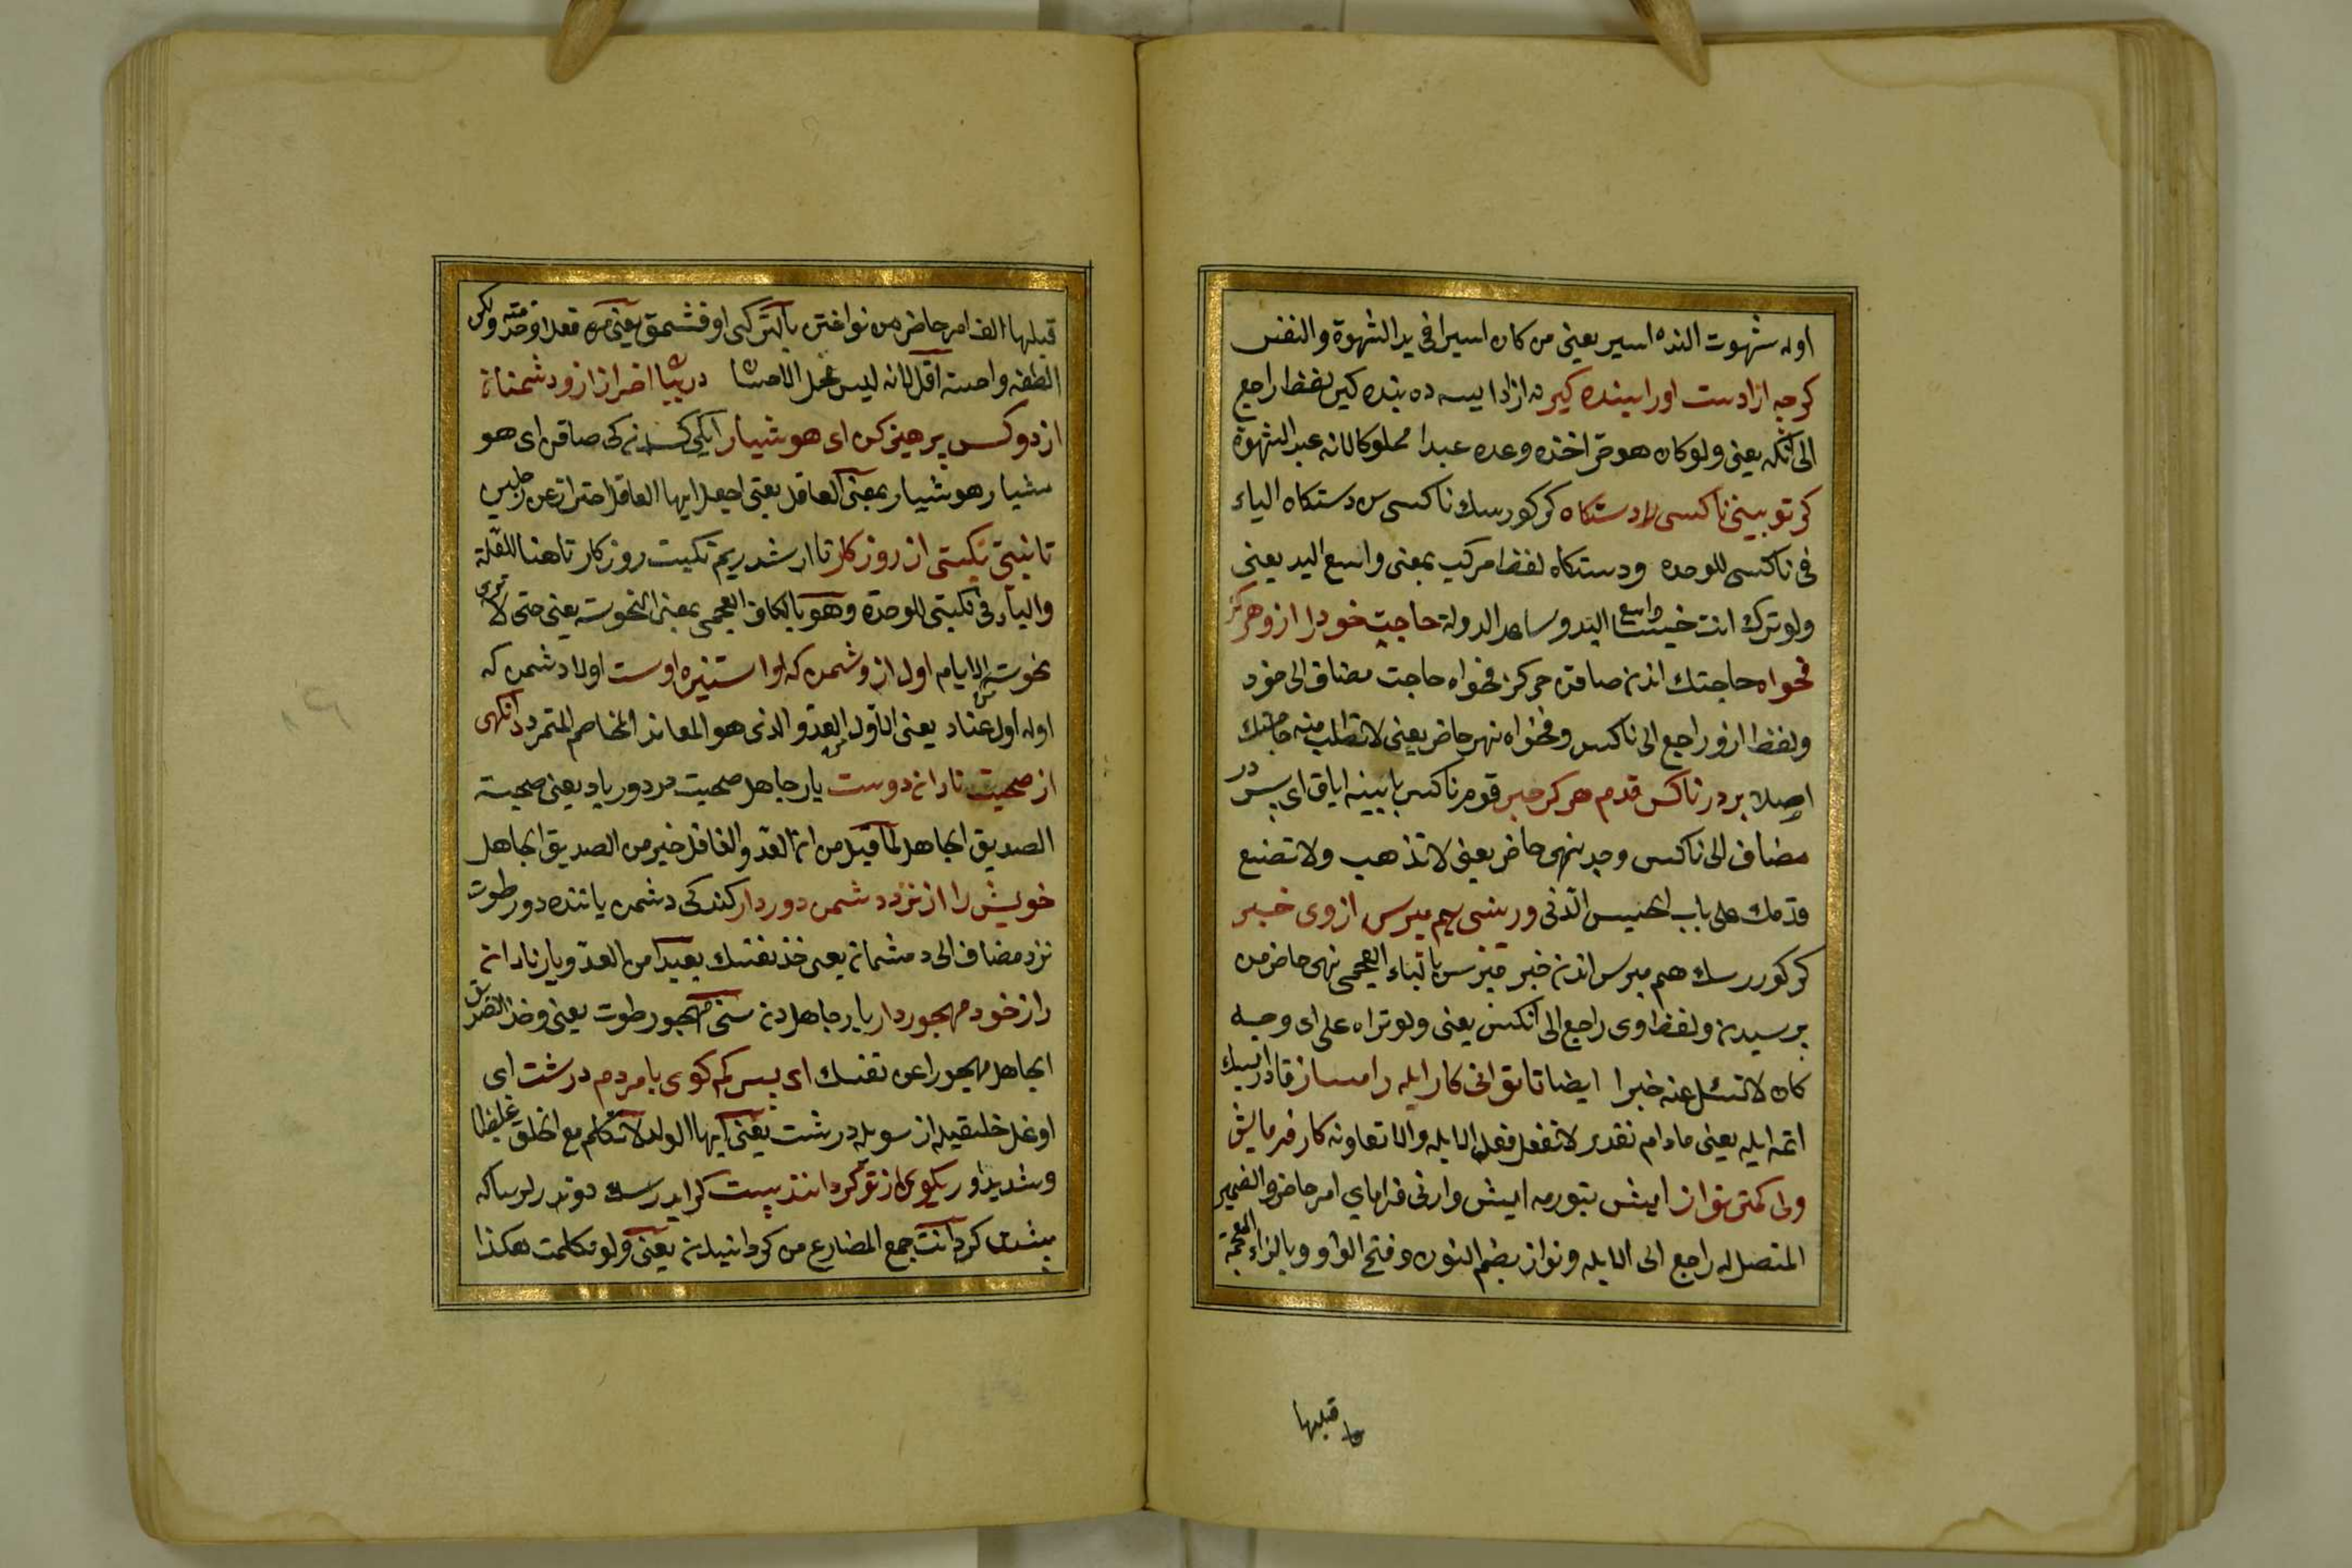 اوله شهوت النده اسير يعنى من كان اسيرا فى يد الشهوة والنفس
كرچه ازادست اورا بنده كير نه ازاد ايسه ده بنده كير لفظ را راجع
الى آنكه يعنى ولو كان هو حرّ اخذه وعده عبدا مملوكا لانه عبد الشهوة
كر تو بينى ناكسى را دستكاه كر كورسك ناكسى دستكاه الياء
فى ناكسى للوحدة ودستكاه لفظ مركب بمعنى واسع اليد يعنى
ولو ترى انت خسيسا واسع اليد وساعد الدولة حاجت خود را ازو هركز
مخواه حاجتك اندن صاقن هركز مخواه حاجت مضاف الى خود
ولفظ ازو راجع الى ناكس ومخواه نهى حاضر يعنى لا تطلب منه حاجتك
اصلا بر در ناكس قدم هركز مبر قومه ناكس بابينه اياق اى پسر در
مضاف الى ناكس ومبر نهى حاضر يعنى لا تذهب ولا تضع
قدمك على باب الخسيس الدنى ور ببينى هم مپرس از وى خبر
كر كوررسك هم مپرس اندن خبر مپرس بالباء العجمى نهى حاضر من
پرسيدن ولفظ وى راجع الى آنكس يعنى ولو تراه على اى وجه
كان لا تسئل عنه خبرا ايضا تا توانى كار ابله را مساز قادر ايسك
اتمه ايله يعنى مادام تقدر لا تفعل فعل الابله ولا تعاونه كار فرمايش
ولى كمتر نواز ايش بيورمه ايش وارنى فرماى امر حاضر والضمير
المتصل له راجع الى الابله ونواز بضم النون وفتح الواو وبالزاء المعجمة
ما قبلها
قبلها الف امر حاضر من نواختن بالتركى اوقشمق يعنى مره فعلا وخدمته ولكن
الطفه واحسنه اقل لانه ليس محل الاحسان در بيان احتراز از ودشمنان
از دو كس پرهيز كن اى هوشيار ايكى كسه دن كى صاقن اى هو
شيار هوشيار بمعنى العاقل يعنى اجعل ايها العاقل احترازا عن رجلين
تا نبينى نكبتى از روزكار تا ارشدريم نكبت روزكار تا هنا للعلة
والياء فى نكبتى للوحدة وهو بالكاف العجمى بمعنى النحوست يعنى حتى لا ترى
نحوسة من الايام اول از دشمن كه او استيزه اوست اولا دشمن كه
اوله اول عناد يعنى الاول العدو الذى هو المعاند المخاصم المتمرد وانكهى
از صحبت نادان دوست يار جاهل صحبت مردور ياد يعنى من صحبة
الصديق الجاهل لما قيل من ان العدو العاقل خير من الصديق الجاهل
خويش را از نزد دشمن دور دار كندكى دشمن ياننده دور طوت
نزد مضاف الى دشمان يعنى خذ نفسك بعيدا من العدو ويار نادان
را ز خود مهجور دار يار جاهلدن سنى مهجور طوت يعنى وخذ الصديق
الجاهل مهجورا عن نفسك اى پسر كم كوى با مردم درشت اى
اوغل خلقيله از سويله درشت يعنى ايها الولد لا تتكلم مع الخلق غليظا
وشديدا ور بكويى از تو كردانند پشت كر ايدرسك دوندرلر ساكه
پشت كردانند جمع المضارع من كردانيدن يعنى ولو تكلمت هكذا